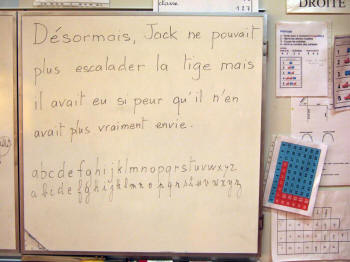 classe
DROITE
Désormais, Jack ne pouvait
plus escalader la tige mais
il avait eu si peur qu'il n'en
avait plus vraiment envie.
abcdefghijklmnopqrstuvwxyz
abcdefghijklmnopqrstuvwxyz